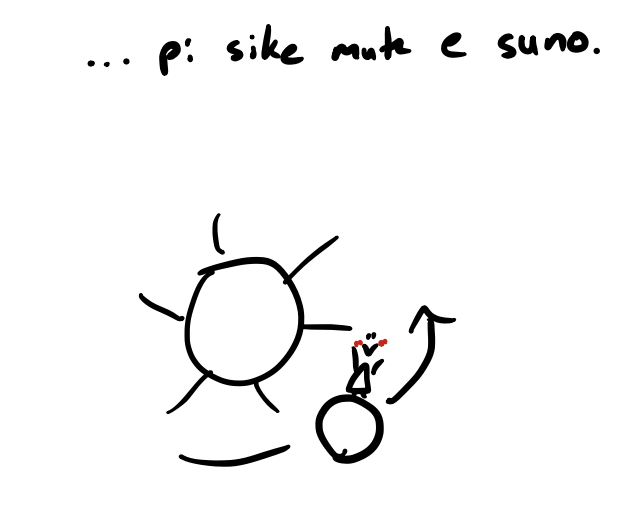 ... pi sike mute e suno.